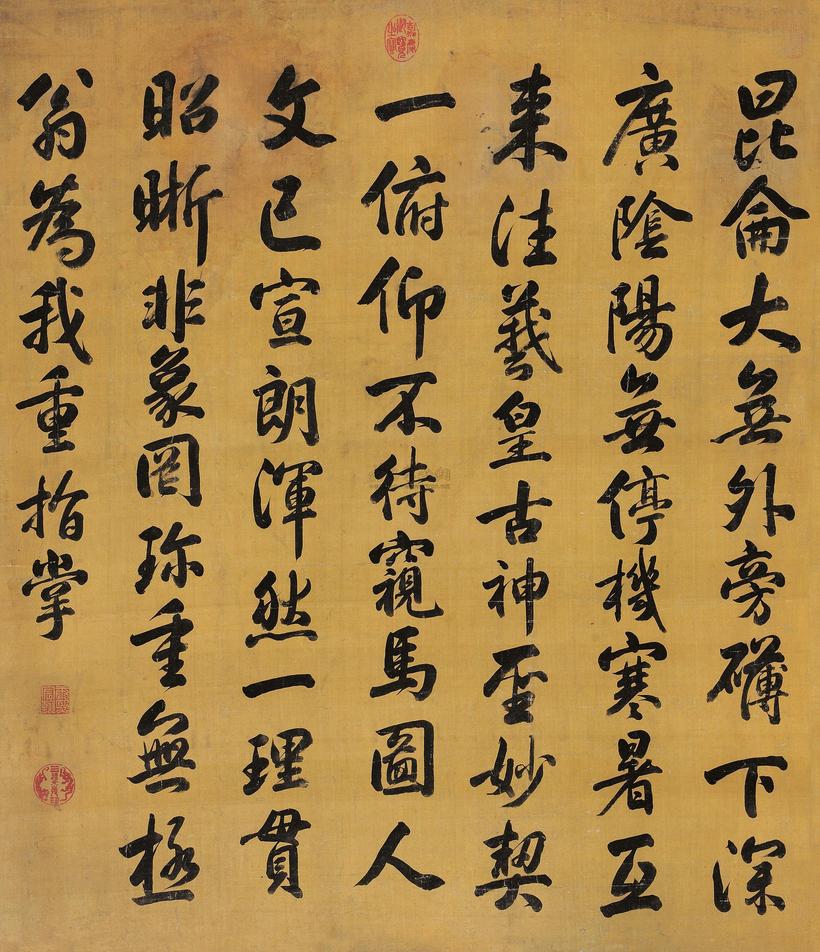 昆侖大無外旁礴下深
廣陰陽無停機寒暑互
來往羲皇古神聖妙契
一俯仰不待窺馬圖人
文已宣朗渾然一理貫
昭晰非象罔珍重無極
翁為我重指掌